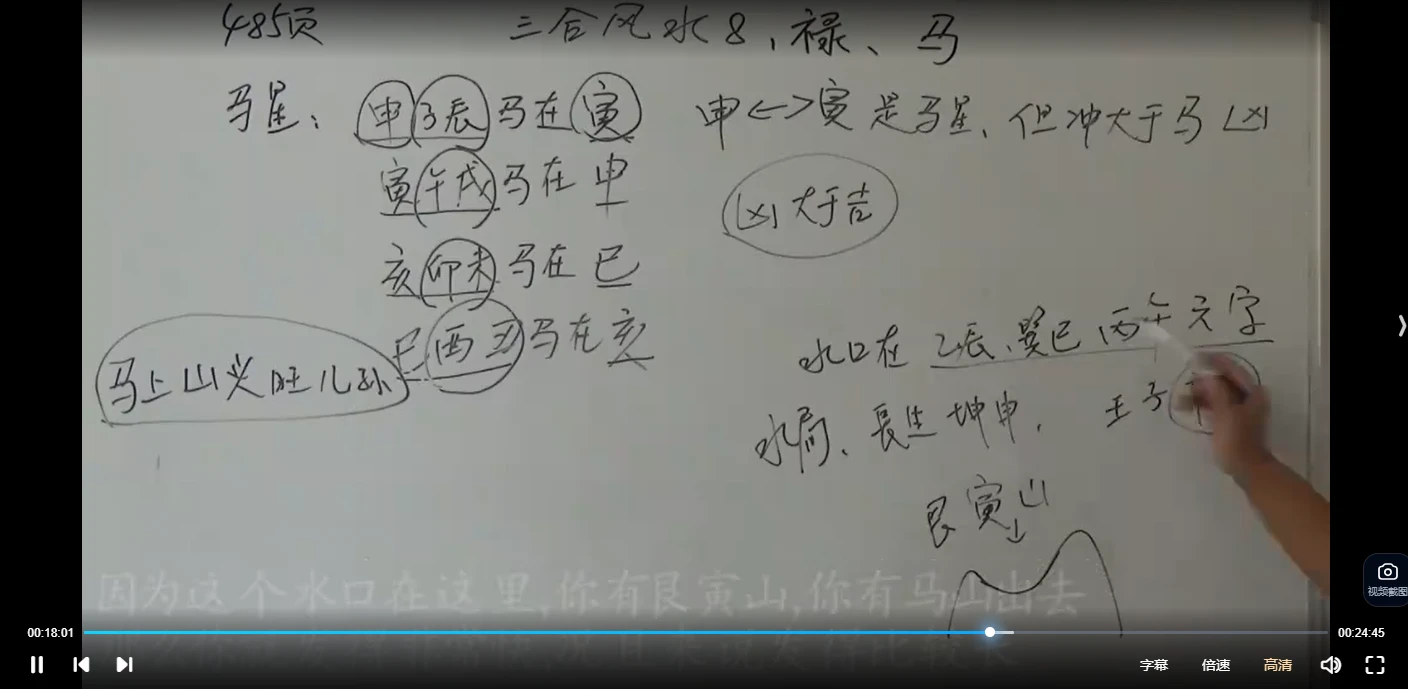 485页 三合风水8、禄、马
马星: 申子辰马在寅 申<->寅是马星、但冲大于马凶
寅午戌马在申 凶大于吉
亥卯未马在巳
巳酉丑马在亥 水口在乙辰、巽巳丙午六字
马上山头旺儿孙
水局、長生坤申. 壬子
艮寅山
因为这个水口在这里,你有艮寅山,你有马山出去
00:18:01
00:24:45
视频截图
字幕 倍速 高清